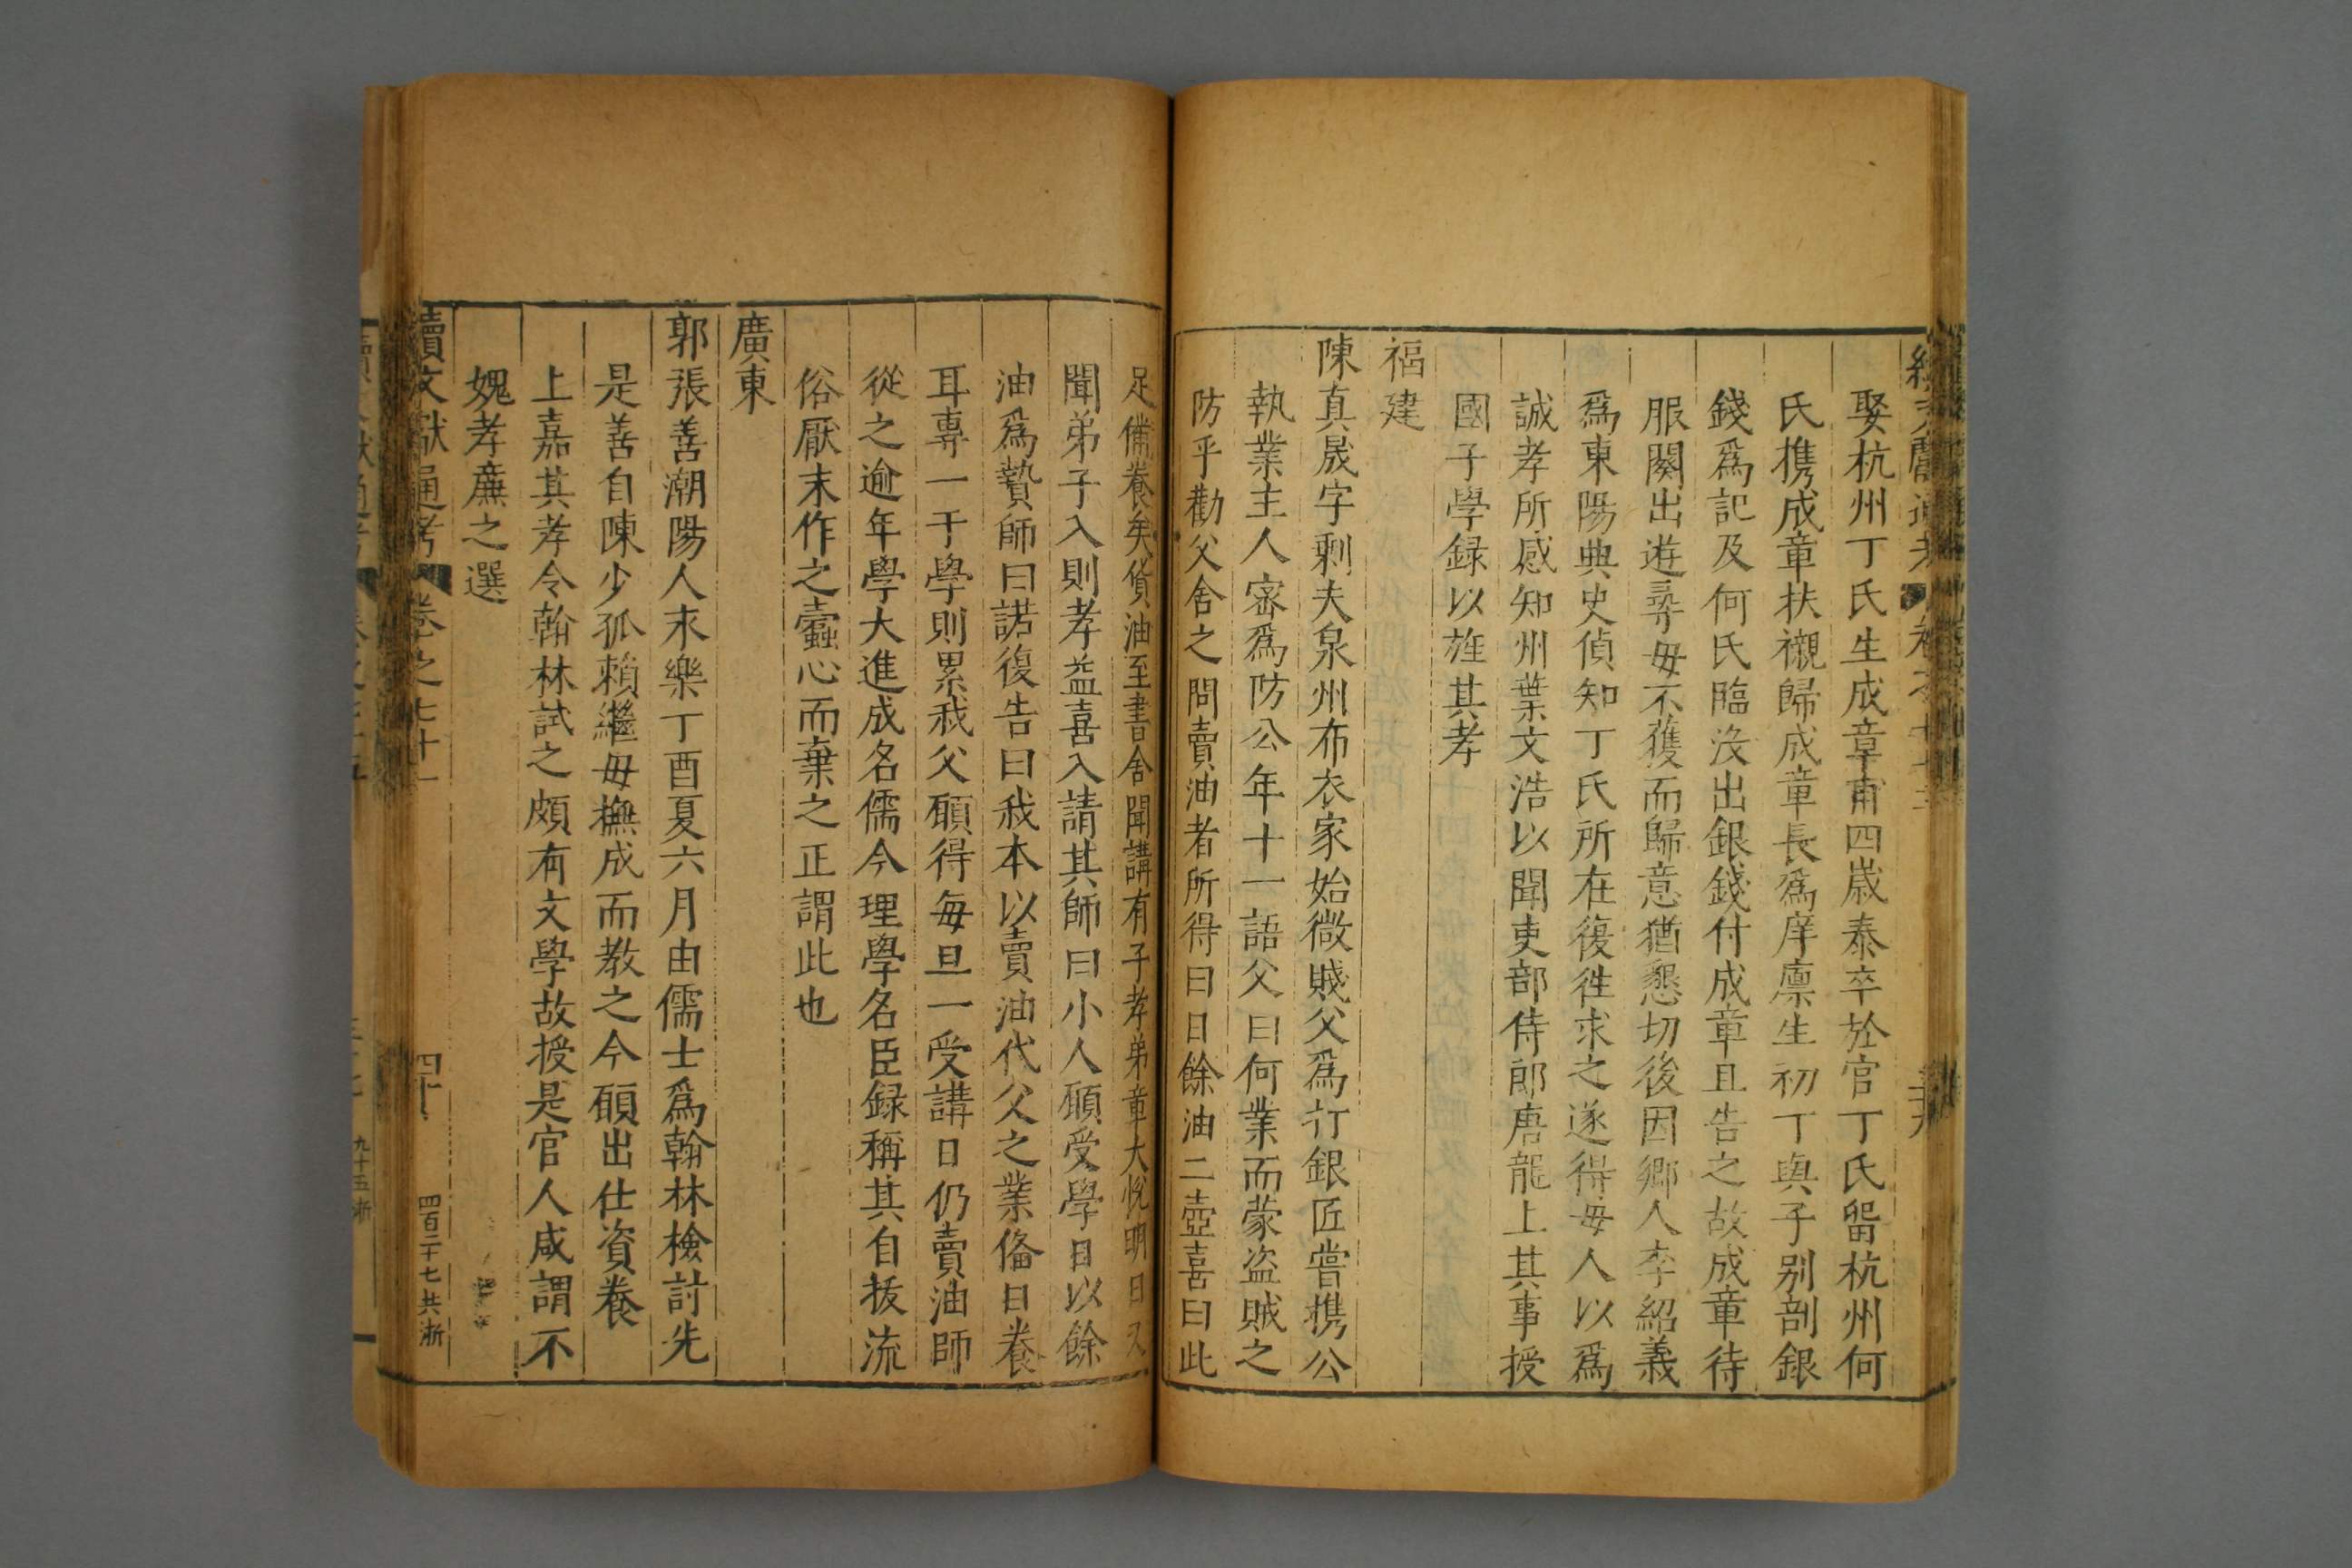 娶杭州丁氏生成章甫四歲泰卒於官丁氏畱杭州何
氏携成章扶櫬歸成章長爲庠廪生初丁與子别剖銀
錢爲記及何氏臨没出銀錢付成章且告之故成章待
服闋出遊尋毋不獲而歸意猶懇切後因鄉人李紹義
爲東陽典史偵知丁氏所在復徃求之遂得毋人以爲
誠孝所感知州葉文浩以聞吏部侍郎唐龍上其事授
國子學録以旌其孝
福建
陳真晟字剩夫泉州布衣家始微賤父爲打銀匠嘗携公
執業主人密爲防公年十一語父曰何業而蒙盗賊之
防乎勸父舍之問賣油者所得曰日餘油二壺喜曰此
足備養矣貨油至書舍聞講有子孝弟章大悅明日又
聞弟子入則孝益喜入請其師曰小人願受學日以餘
油爲贄師曰諾復告曰我本以賣油代父之業俻日養
耳專一于學則累我父願得每旦一受講日仍賣油師
從之逾年學大進成名儒今理學名臣録稱其自拔流
俗厭末作之蠧心而棄之正謂此也
廣東
郭張善潮陽人末樂丁酉夏六月由儒士爲翰林檢討先
是善自陳少孤賴繼毋撫成而教之今願出仕資養
上嘉其孝令翰林試之頗有文學故授是官人咸謂不
媿孝廉之選
續文獻通考 卷之七十一 四十 四百二十七共浙